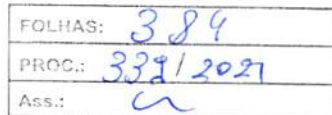 FOLHAS: 384
PROC.: 332/2021
Ass.: